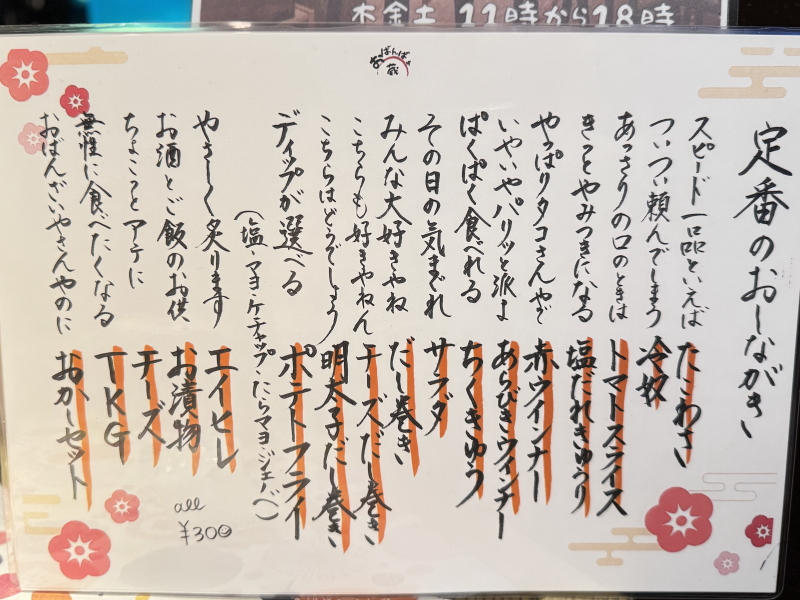 木金土 11時から18時
おばんざい蔵
定番のおしながき
スピード一品といえば たこわさ
ついつい頼んでしまう 冷奴
あっさりの口のときは トマトスライス
きっとやみつきになる 塩だれきゅうり
やっぱりタコさんやで 赤ウインナー
いやいやパリッと派よ あらびきウインナー
ぱくぱく食べれる ちくきゅう
その日の気まぐれ サラダ
みんな大好きやね だし巻き
こちらも好きやねん チーズだし巻き
こちらはどうでしょう 明太子だし巻き
ディップが選べる ポテトフライ
(塩、マヨ、ケチャップ、たらマヨ、ジェノベ)
やさしく炙ります エイヒレ
お酒とご飯のお供、 お漬物
ちょこっとアテに チーズ
無性に食べたくなる TKG
おばんざいやさんやのに おかしセット
all
¥300